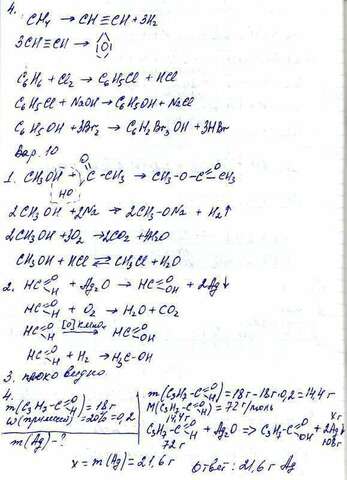 4.
CH₄ → CH≡CH + 3H₂
3CH≡CH →
C₆H₆ + Cl₂ → C₆H₅Cl + HCl
C₆H₅Cl + NaOH → C₆H₅OH + NaCl
C₆H₅OH + 3Br₂ → C₆H₂Br₃OH + 3HBr
Вар. 10
1. CH₃OH + HO-C(=O)-CH₃ → CH₃-O-C(=O)-CH₃
2CH₃OH + 2Na → 2CH₃-ONa + H₂↑
2CH₃OH + 3O₂ → 2CO₂ + 4H₂O
CH₃OH + HCl ⇄ CH₃Cl + H₂O
2. HC(=O)H + Ag₂O → HC(=O)OH + 2Ag↓
HC(=O)H + O₂ → H₂O + CO₂
HC(=O)H [O] KMnO₄ → HC(=O)OH
HC(=O)H + H₂ → H₃C-OH
3. плохо видно
4.
m(C₃H₇-C(=O)H) = 18г
w(примесей) = 20% = 0,2
m(Ag) - ?
m(C₃H₇-C(=O)H) = 18г - 18г·0,2 = 14,4г
M(C₃H₇-C(=O)H) = 72г/моль
14,4г xг
C₃H₇-C(=O)H + Ag₂O => C₃H₇-C(=O)OH + 2Ag↓
72г 108г
x = m(Ag) = 21,6г
Ответ: 21,6г Ag